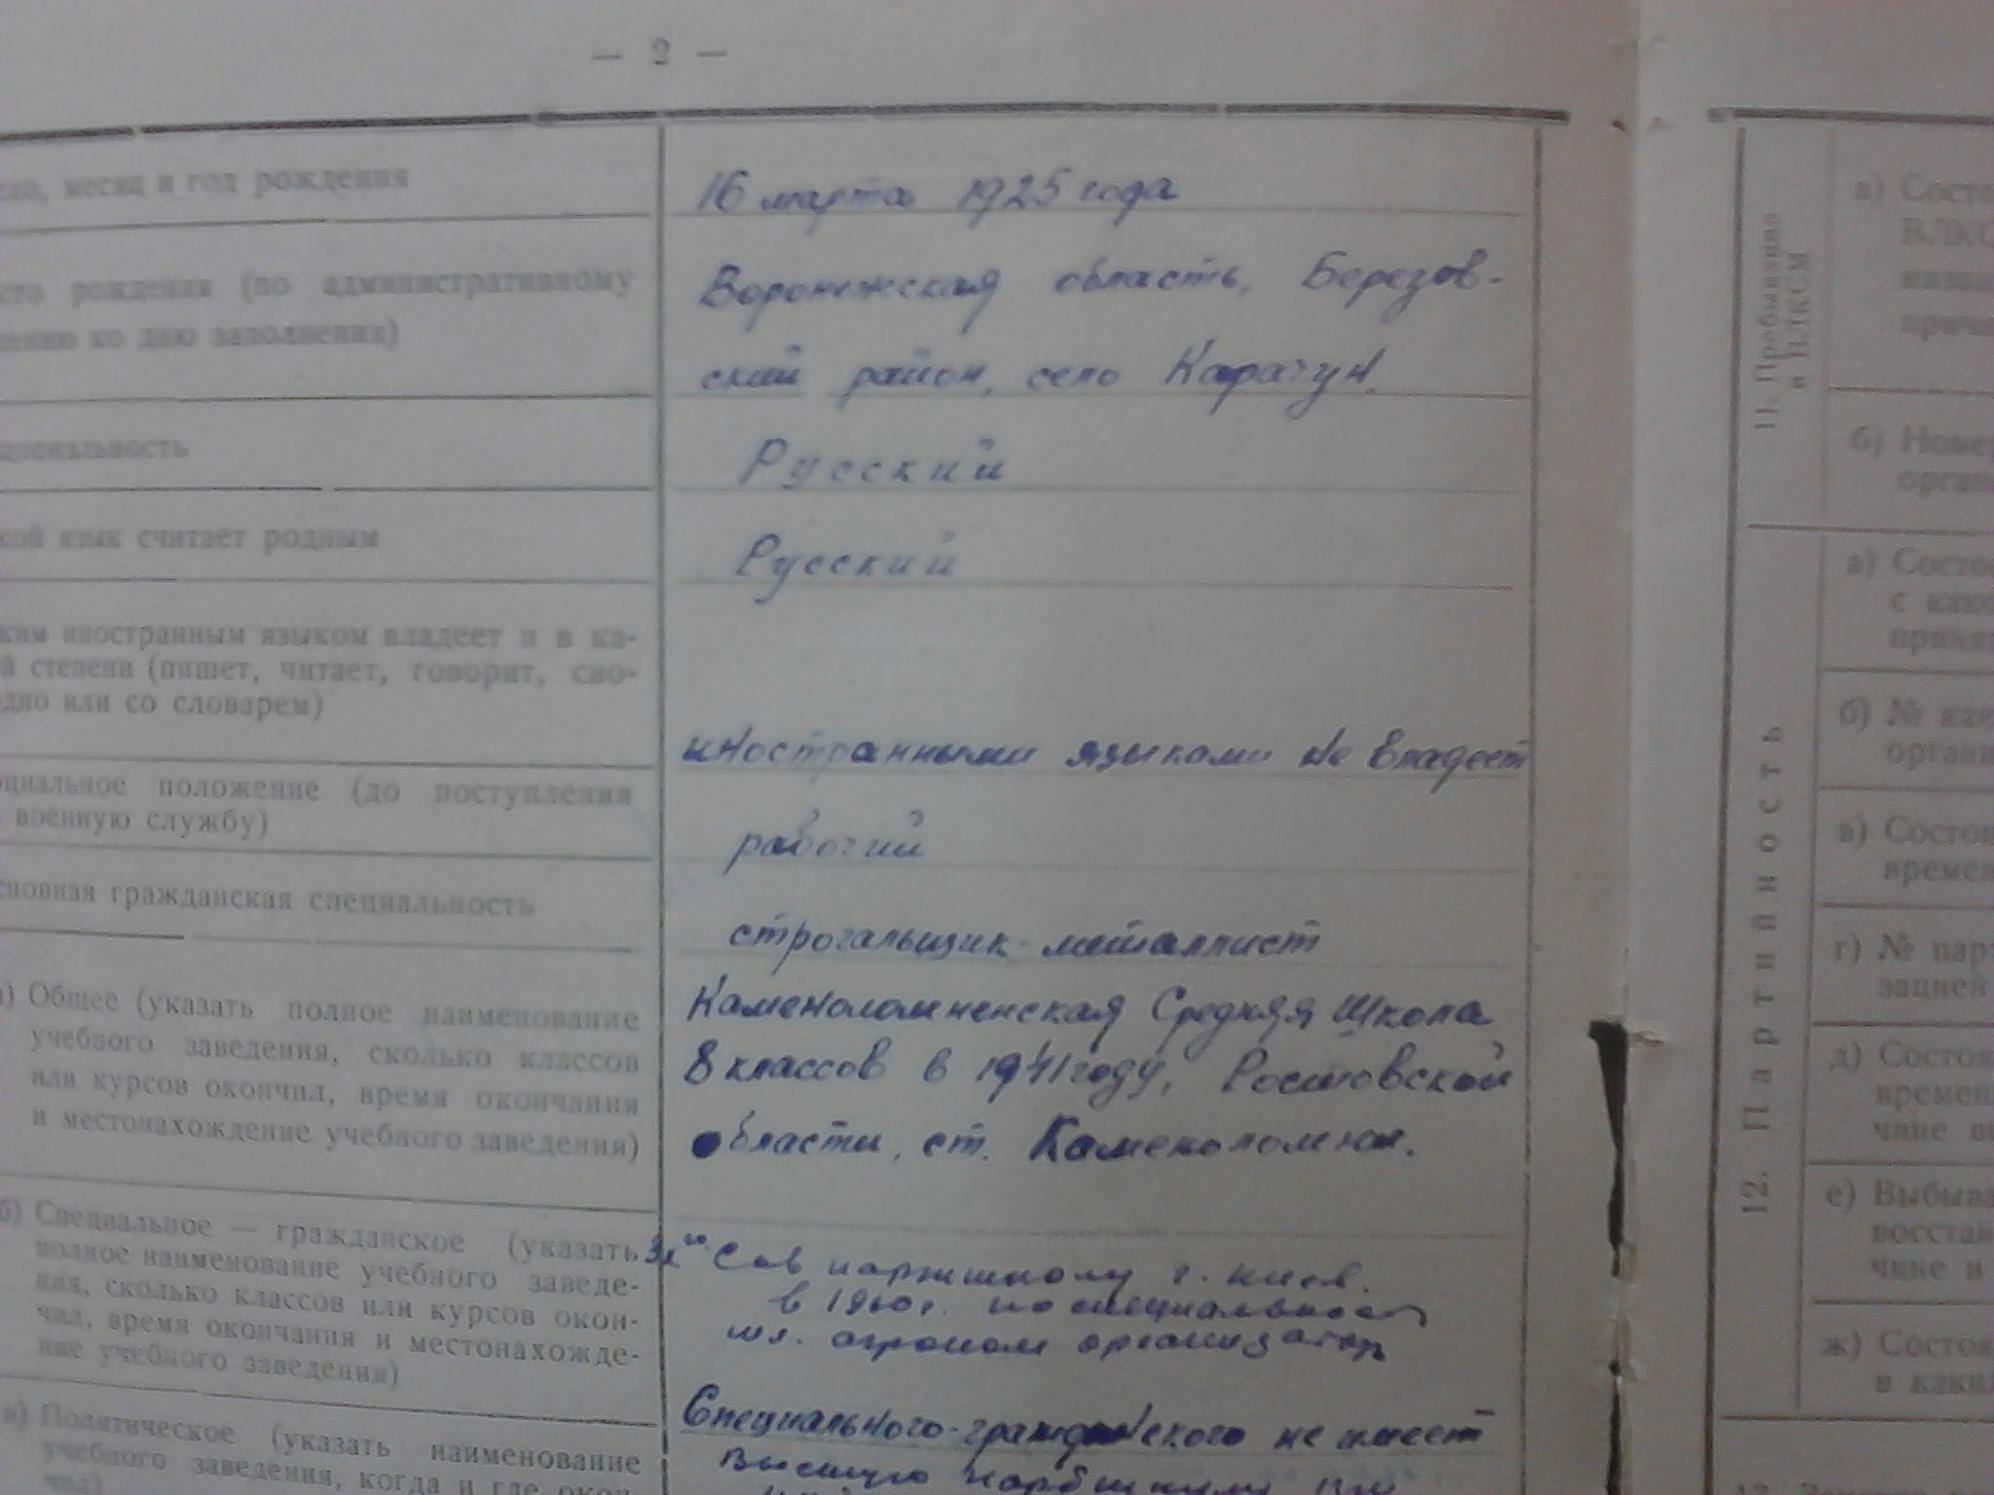 — 2 —
месяц и год рождения
16 марта 1925 года
рождения (по административному
ко дню заполнения)
Воронежская область, Березов-
ский район, село Карачун.
циональность
Русский
кой язык считает родным
Русский
ким иностранным языком владеет и в ка-
й степени (пишет, читает, говорит, сво-
дно или со словарем)
иностранными языками не владеет
циальное положение (до поступления
военную службу)
рабочий
сновная гражданская специальность
строгальщик-металлист
а) Общее (указать полное наименование
учебного заведения, сколько классов
или курсов окончил, время окончания
и местонахождение учебного заведения)
Каменоломненская Средняя Школа
8 классов в 1941 году, Ростовской
области, ст. Каменоломни.
б) Специальное — гражданское (указать
полное наименование учебного заведе-
ния, сколько классов или курсов окон-
чил, время окончания и местонахожде-
ние учебного заведения)
Сов партшколу г. Киев.
в 1960 г. по специальност
агроном организатор
Специального-гражданского не имеет
в) Политическое (указать наименование
учебного заведения, когда и где окон-
чил)
Высшую
11. Пребывание
в ВЛКСМ
а) Состо
ВЛКС
низац
причи
б) Номер
орган
12. Партийность
а) Состо
с како
принят
б) № кан
органи
в) Состоя
времен
г) № пар
зацией
д) Состоя
времен
чине в
е) Выбыва
восстан
чине и
ж) Состоя
в каки